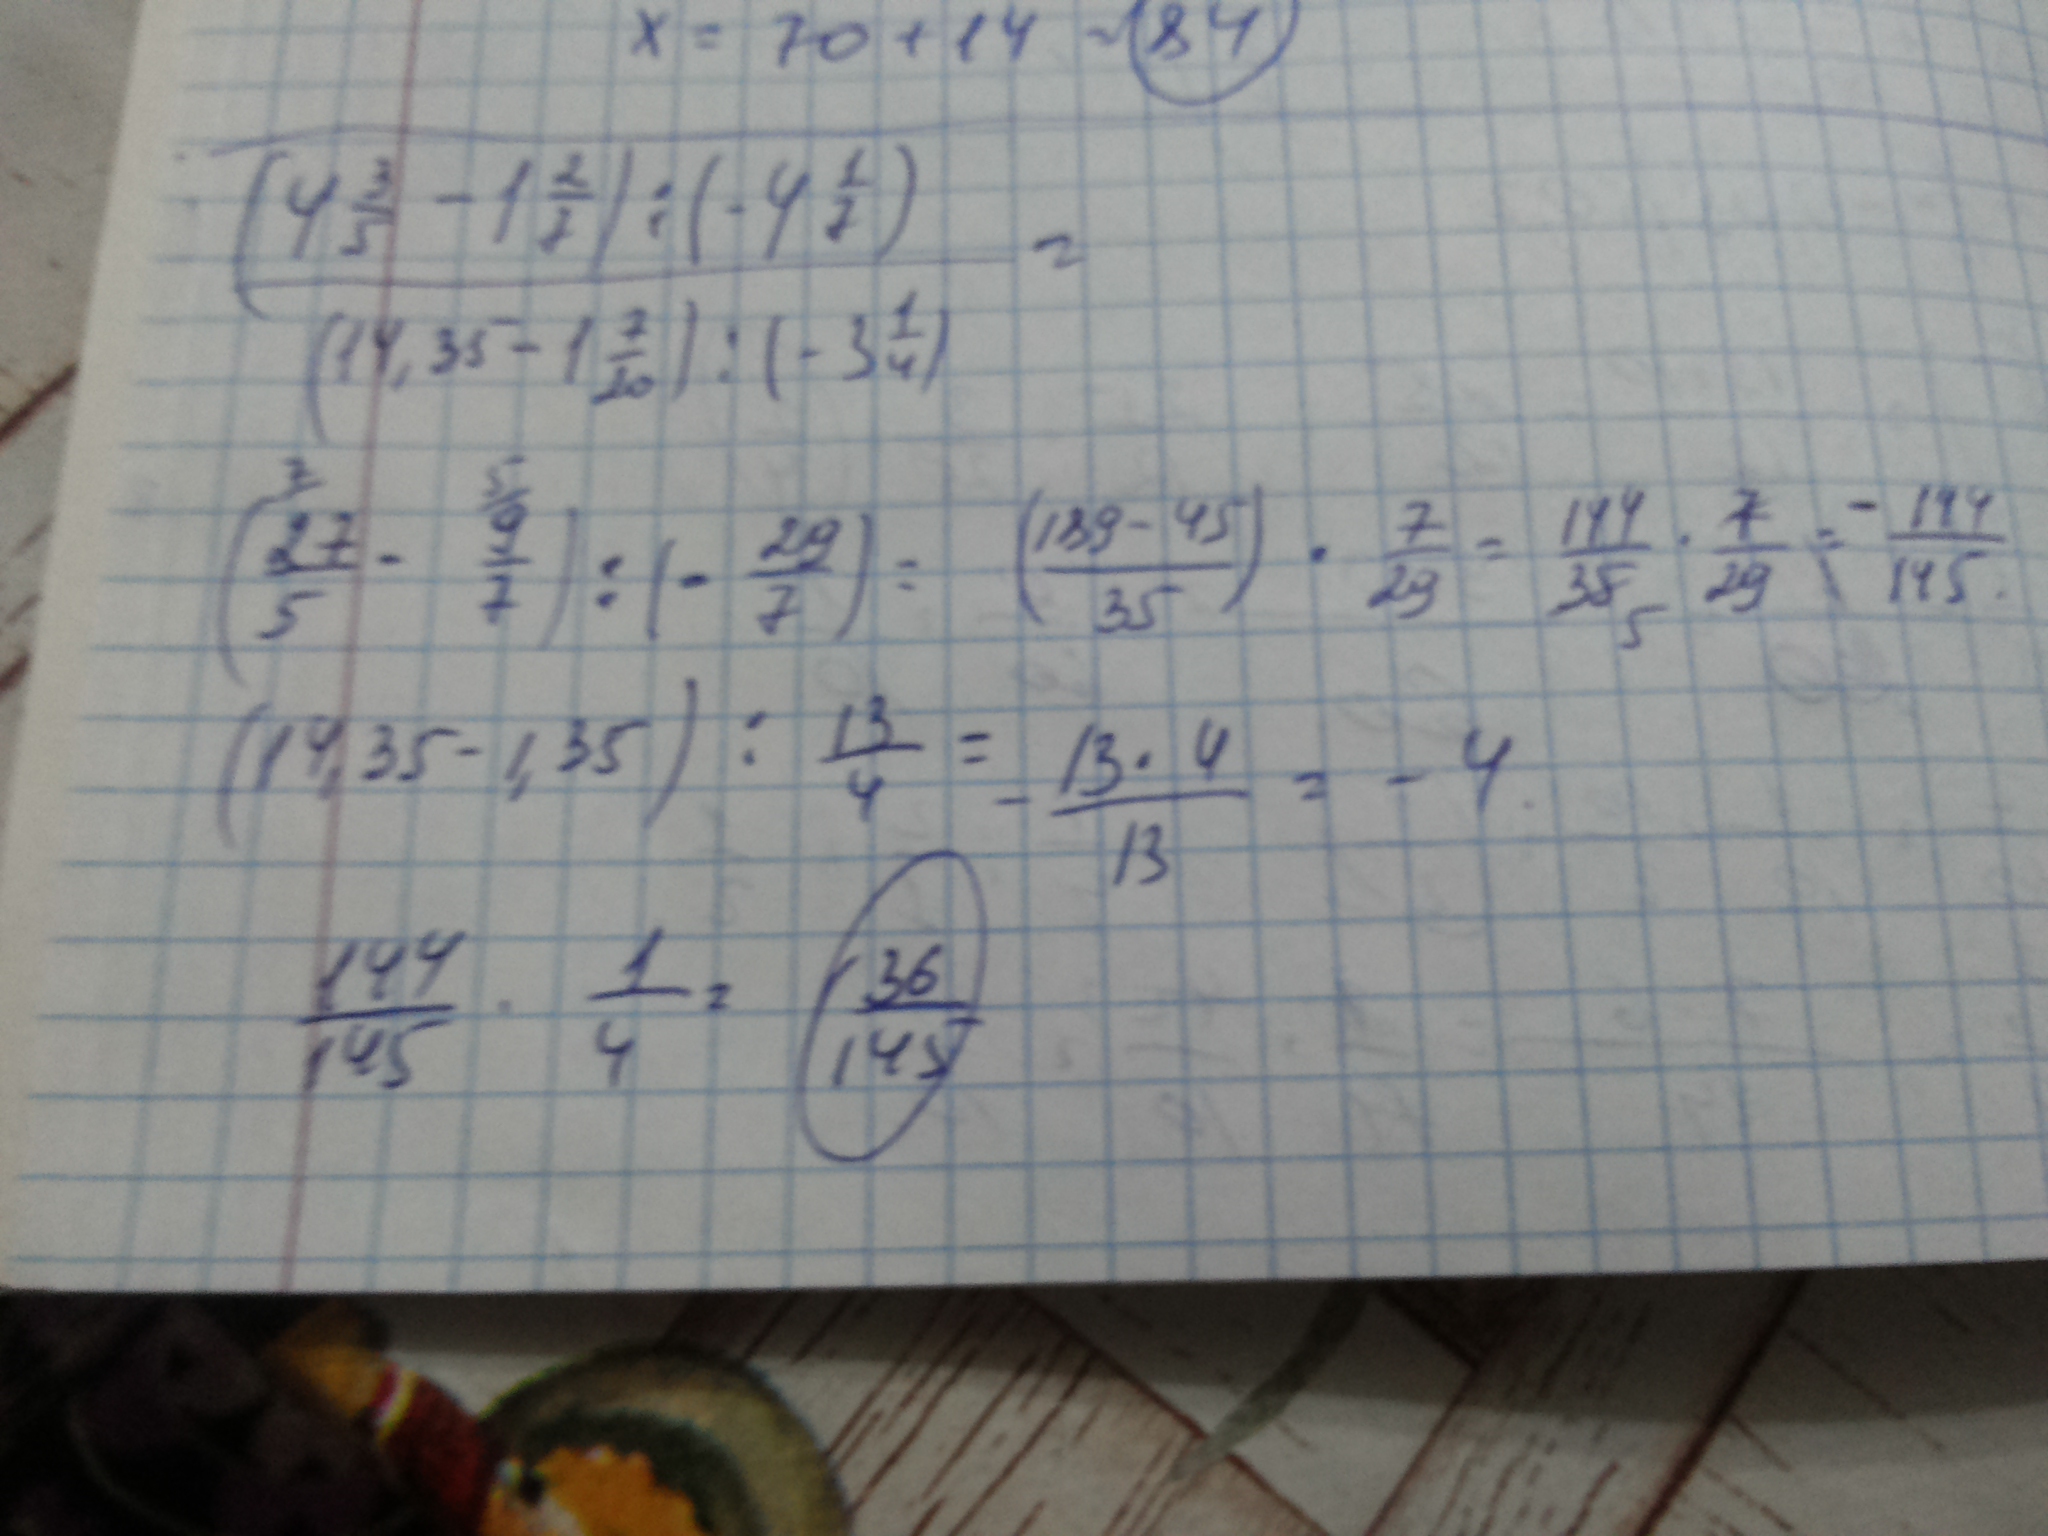 x = 70 + 14 = 84
(4 3/5 - 1 2/7) : (- 4 1/7)
=
(14,35 - 1 7/20) : (- 3 1/4)
7 5
(27/5 - 9/7) : (- 29/7) = (189 - 45)/35 · 7/29 = 144/35 · 7/29 = - 144/145.
5
(14,35 - 1,35) : 13/4 = - 13 · 4/13 = - 4.
144/145 · 1/4 = 36/145